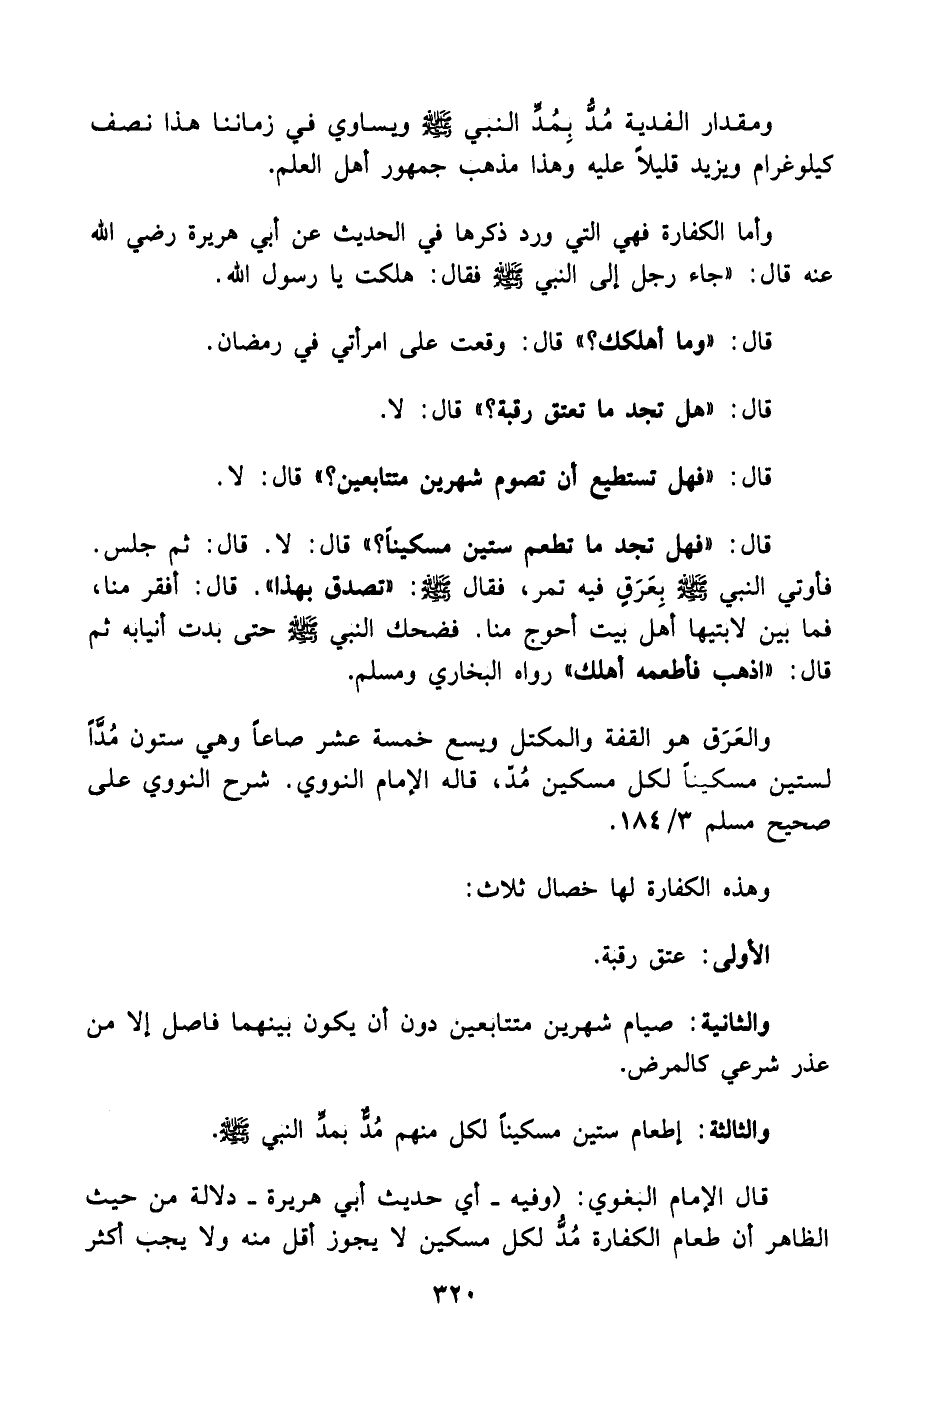 ومقدار الفدية مُدٌّ بِمُدِّ النبي ﷺ ويساوي في زماننا هذا نصف
كيلوغرام ويزيد قليلاً عليه وهذا مذهب جمهور أهل العلم.
وأما الكفارة فهي التي ورد ذكرها في الحديث عن أبي هريرة رضي الله
عنه قال: «جاء رجل إلى النبي ﷺ فقال: هلكت يا رسول الله.
قال: «وما أهلكك؟» قال: وقعت على امرأتي في رمضان.
قال: «هل تجد ما تعتق رقبة؟» قال: لا.
قال: «فهل تستطيع أن تصوم شهرين متتابعين؟» قال: لا.
قال: «فهل تجد ما تطعم ستين مسكيناً؟» قال: لا. قال: ثم جلس.
فأوتي النبي ﷺ بِعَرَقٍ فيه تمر، فقال ﷺ: «تصدق بهذا». قال: أفقر منا،
فما بين لابتيها أهل بيت أحوج منا. فضحك النبي ﷺ حتى بدت أنيابه ثم
قال: «اذهب فأطعمه أهلك» رواه البخاري ومسلم.
والعَرَق هو القفة والمكتل ويسع خمسة عشر صاعاً وهي ستون مُدَّاً
لستين مسكيناً لكل مسكين مُدّ، قاله الإمام النووي. شرح النووي على
صحيح مسلم ٣/ ١٨٤.
وهذه الكفارة لها خصال ثلاث:
الأولى: عتق رقبة.
والثانية: صيام شهرين متتابعين دون أن يكون بينهما فاصل إلا من
عذر شرعي كالمرض.
والثالثة: إطعام ستين مسكيناً لكل منهم مُدٌّ بمدِّ النبي ﷺ.
قال الإمام البغوي: (وفيه ـ أي حديث أبي هريرة ـ دلالة من حيث
الظاهر أن طعام الكفارة مُدٌّ لكل مسكين لا يجوز أقل منه ولا يجب أكثر
٣٢٠